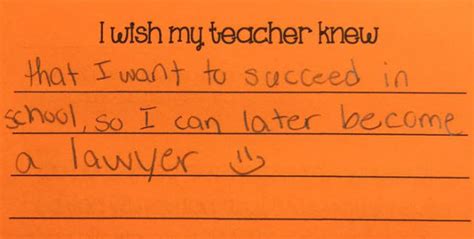 I wish my teacher knew
that I want to succeed in
school, so I can later become
a lawyer